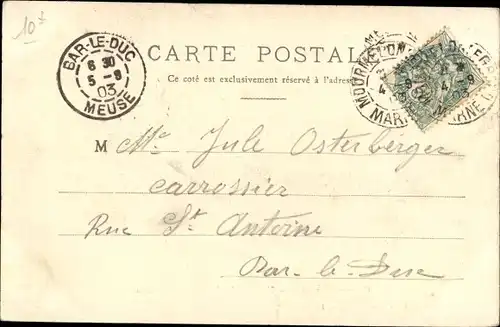 10f
BAR-LE-DUC
6 30
5 - 9
03
MEUSE
CARTE POSTALE
Ce coté est exclusivement réservé à l'adresse
MOURMELON
4 9
MARNE
M Mr Jule Osterberger
carrossier
Rue St Antoine
Bar-le-Duc